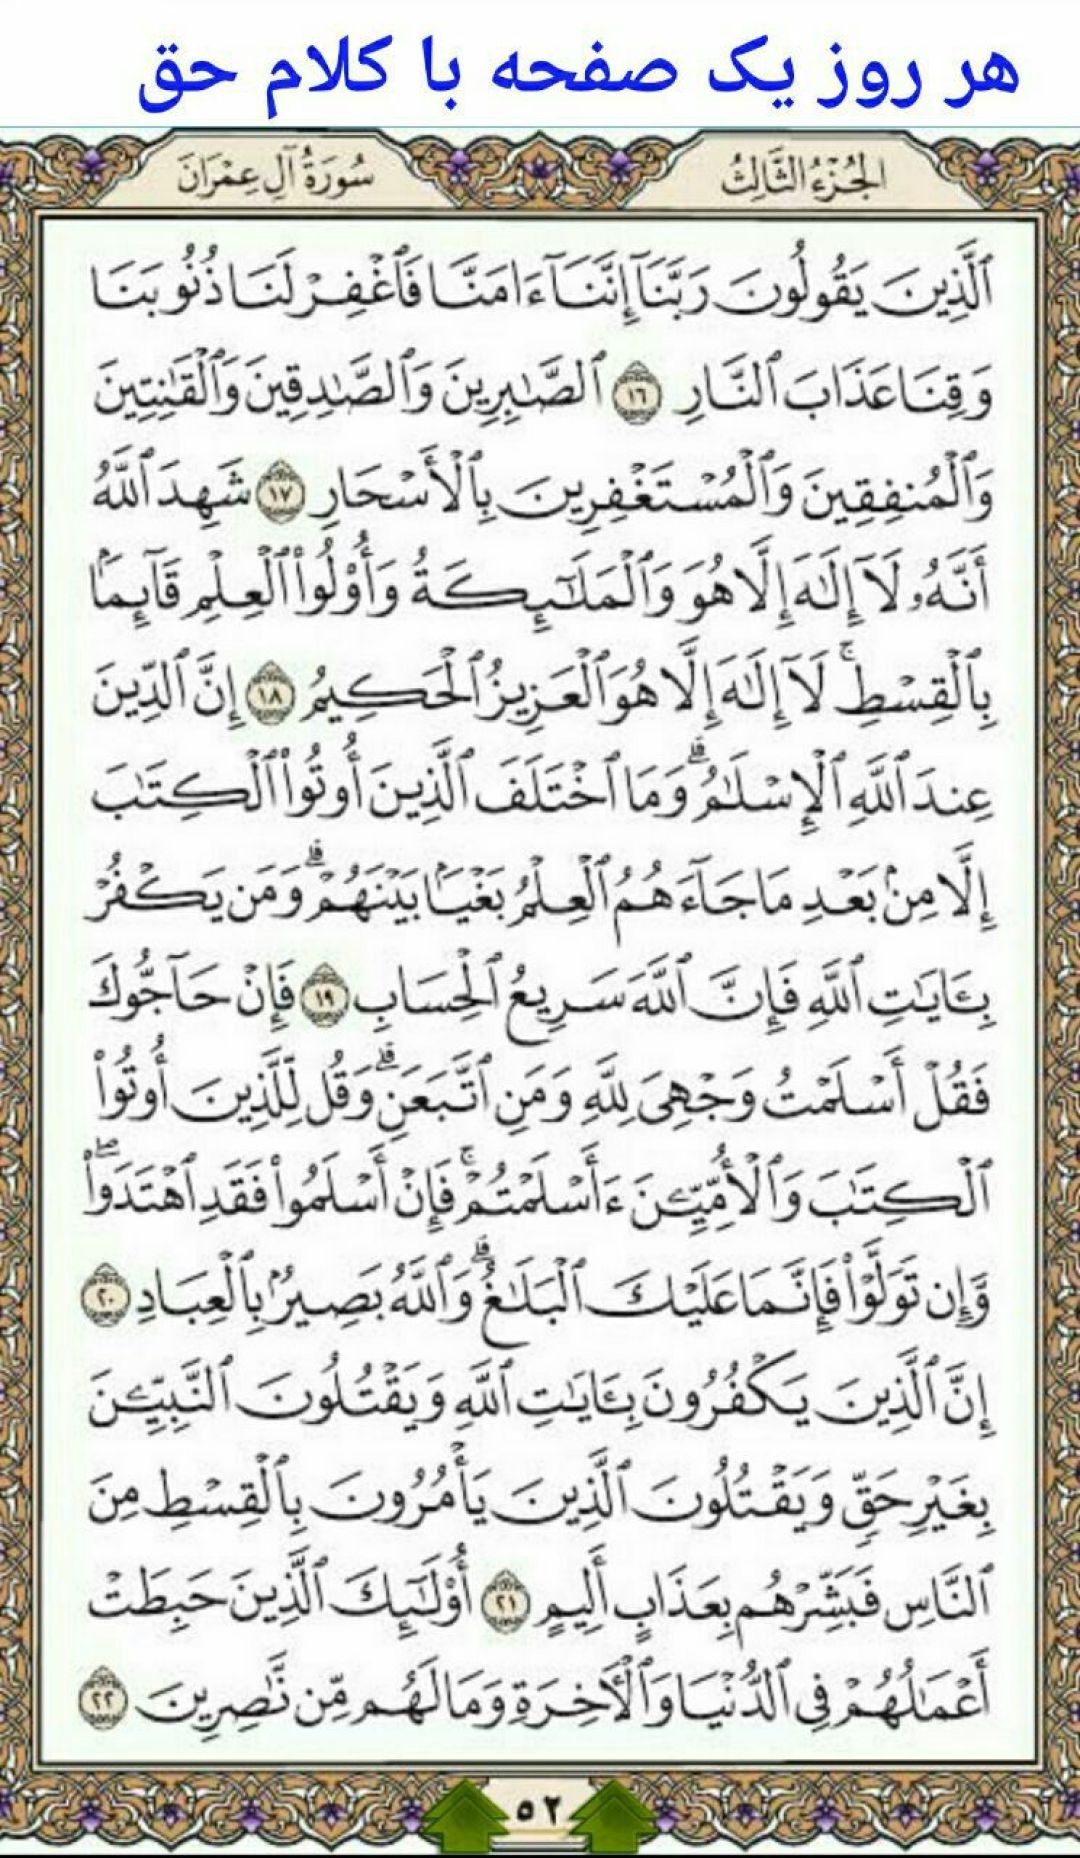 هر روز یک صفحه با کلام حق
الجُزْءُ الثَّالِثُ
سُورَةُ آلِ عِمْرَانَ
ٱلَّذِينَ يَقُولُونَ رَبَّنَآ إِنَّنَآ ءَامَنَّا فَٱغْفِرْ لَنَا ذُنُوبَنَا
وَقِنَا عَذَابَ ٱلنَّارِ ١٦ ٱلصَّٰبِرِينَ وَٱلصَّٰدِقِينَ وَٱلْقَٰنِتِينَ
وَٱلْمُنفِقِينَ وَٱلْمُسْتَغْفِرِينَ بِٱلْأَسْحَارِ ١٧ شَهِدَ ٱللَّهُ
أَنَّهُۥ لَآ إِلَٰهَ إِلَّا هُوَ وَٱلْمَلَٰٓئِكَةُ وَأُو۟لُوا۟ ٱلْعِلْمِ قَآئِمًۢا
بِٱلْقِسْطِ ۚ لَآ إِلَٰهَ إِلَّا هُوَ ٱلْعَزِيزُ ٱلْحَكِيمُ ١٨ إِنَّ ٱلدِّينَ
عِندَ ٱللَّهِ ٱلْإِسْلَٰمُ ۗ وَمَا ٱخْتَلَفَ ٱلَّذِينَ أُوتُوا۟ ٱلْكِتَٰبَ
إِلَّا مِنۢ بَعْدِ مَا جَآءَهُمُ ٱلْعِلْمُ بَغْيًۢا بَيْنَهُمْ ۗ وَمَن يَكْفُرْ
بِـَٔايَٰتِ ٱللَّهِ فَإِنَّ ٱللَّهَ سَرِيعُ ٱلْحِسَابِ ١٩ فَإِنْ حَآجُّوكَ
فَقُلْ أَسْلَمْتُ وَجْهِىَ لِلَّهِ وَمَنِ ٱتَّبَعَنِ ۗ وَقُل لِّلَّذِينَ أُوتُوا۟
ٱلْكِتَٰبَ وَٱلْأُمِّيِّـۧنَ ءَأَسْلَمْتُمْ ۚ فَإِنْ أَسْلَمُوا۟ فَقَدِ ٱهْتَدَوا۟ ۖ
وَّإِن تَوَلَّوْا۟ فَإِنَّمَا عَلَيْكَ ٱلْبَلَٰغُ ۗ وَٱللَّهُ بَصِيرٌۢ بِٱلْعِبَادِ ٢٠
إِنَّ ٱلَّذِينَ يَكْفُرُونَ بِـَٔايَٰتِ ٱللَّهِ وَيَقْتُلُونَ ٱلنَّبِيِّـۧنَ
بِغَيْرِ حَقٍّ وَيَقْتُلُونَ ٱلَّذِينَ يَأْمُرُونَ بِٱلْقِسْطِ مِنَ
ٱلنَّاسِ فَبَشِّرْهُم بِعَذَابٍ أَلِيمٍ ٢١ أُو۟لَٰٓئِكَ ٱلَّذِينَ حَبِطَتْ
أَعْمَٰلُهُمْ فِى ٱلدُّنْيَا وَٱلْءَاخِرَةِ وَمَا لَهُم مِّن نَّٰصِرِينَ ٢٢
٥٢